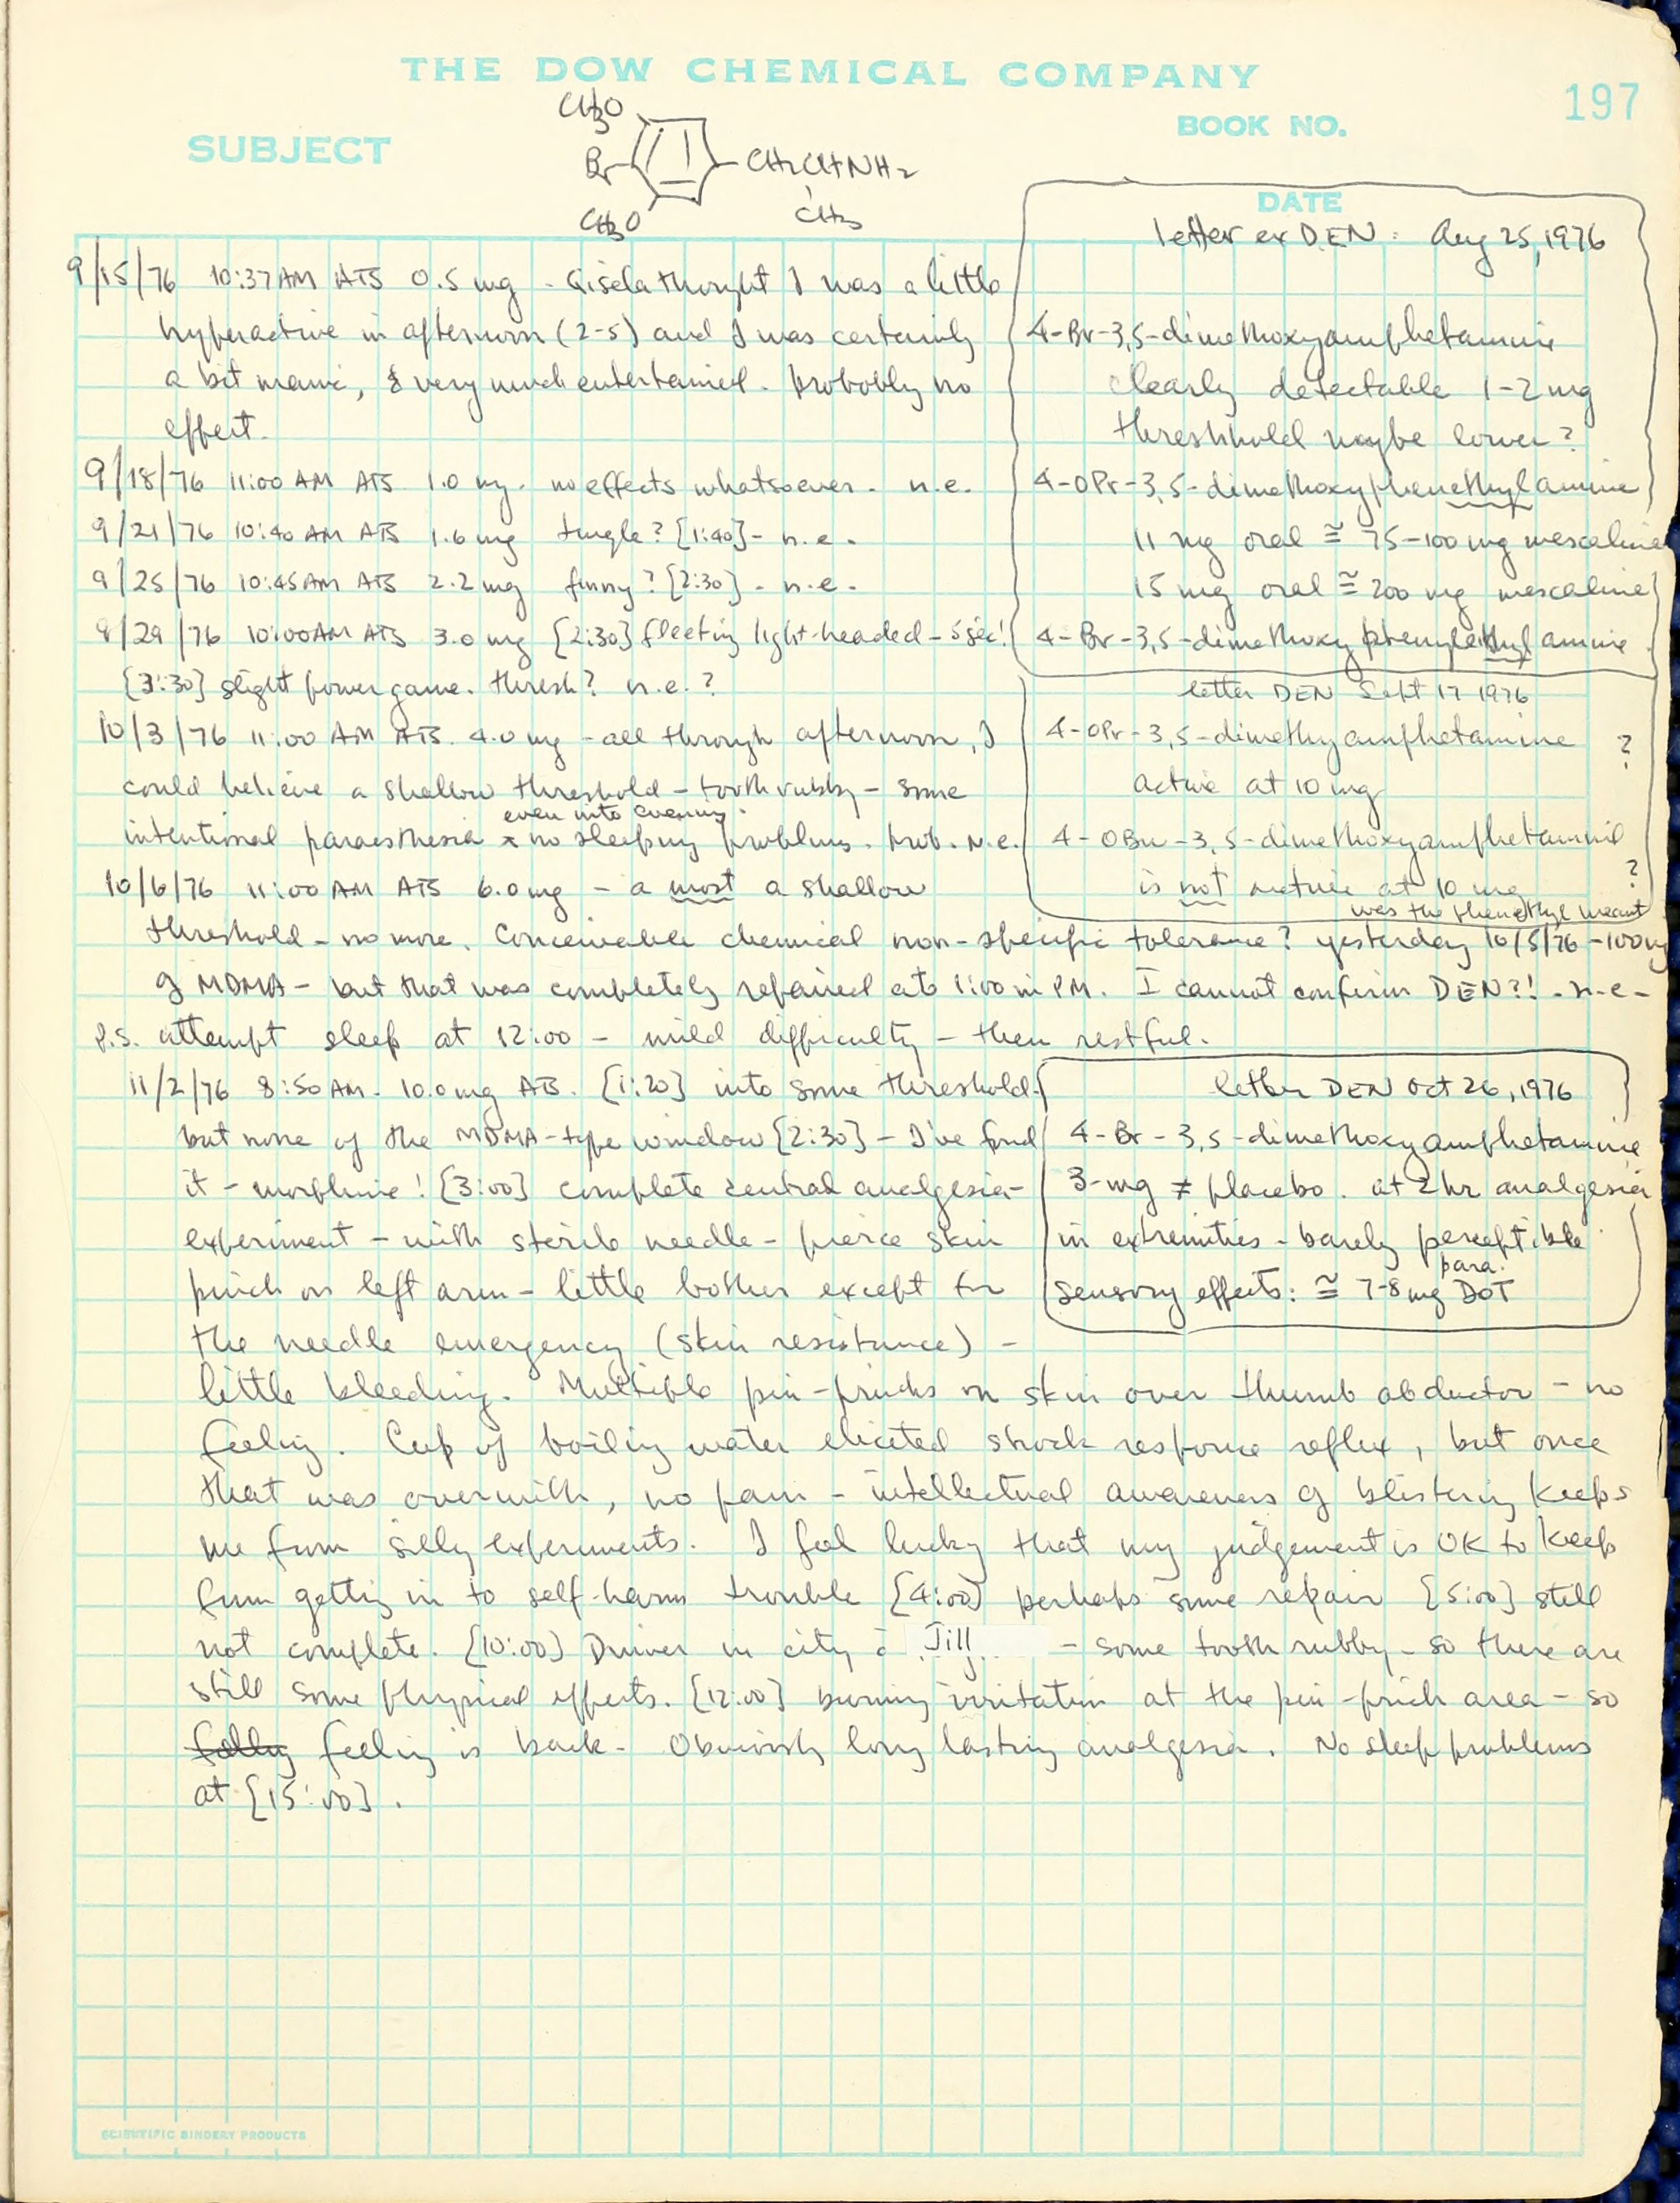 THE DOW CHEMICAL COMPANY
197
SUBJECT
BOOK NO.
CH3O
Br
CH2CHNH2
CH3O
CH3
DATE
letter ex DEN: Aug 25, 1976
4-Br-3,5-dimethoxyamphetamine
clearly detectable 1-2 mg
threshhold maybe lower?
4-OPr-3,5-dimethoxyphenethylamine
11 mg oral ≅ 75-100 mg mescaline
15 mg oral ≅ 200 mg mescaline
4-Br-3,5-dimethoxy phenylethyl amine
letter DEN Sept 17 1976
4-OPr-3,5-dimethyamphetamine ?
active at 10 mg
4-OBu-3,5-dimethoxyamphetamine
is not active at 10 mg ?
was the phenethyl meant
9/15/76 10:37 AM ATS 0.5 mg - Gisela thought I was a little
hyperactive in afternoon (2-5) and I was certainly
a bit manic, & very much entertained. Probably no
effect.
9/18/76 11:00 AM ATS 1.0 mg. no effects whatsoever. n.e.
9/21/76 10:40 AM ATS 1.6 mg tingle? [1:40] - n.e.
9/25/76 10:45 AM ATS 2.2 mg funny? [2:30] - n.e.
9/29/76 10:00 AM ATS 3.0 mg [2:30] fleeting light-headed - 5 sec!
[3:30] slight power game. thresh? n.e.?
10/3/76 11:00 AM ATS. 4.0 mg - all through afternoon, I
could believe a shallow threshold - tooth rubby - some
even into evening.
intentional paraesthesia x no sleeping problems. prob. n.e.
10/6/76 11:00 AM ATS 6.0 mg - a most a shallow
threshold - no more. Conceivable chemical non-specific tolerance? yesterday 10/5/76 - 100 mg
of MDMA - but that was completely repaired at 1:00 in PM. I cannot confirm DEN?! - n.e. -
P.S. attempt sleep at 12:00 - mild difficulty - then restful.
11/2/76 8:50 AM. 10.0 mg ATS. [1:20] into some threshold.
but none of the MDMA-type window [2:30] - I've found
it - morphine! [3:00] complete central analgesia -
experiment - with sterile needle - pierce skin
pinch on left arm - little bother except for
the needle emergency (skin resistance) -
letter DEN Oct 26, 1976
4-Br-3,5-dimethoxyamphetamine
3-mg ≠ placebo. at 2 hr analgesia
in extremities - barely perceptible
para.
sensory effects: ≅ 7-8 mg DOT
little bleeding. Multiple pin-pricks on skin over thumb abductor - no
feeling. Cup of boiling water elicited shock response reflex, but once
that was over with, no pain - intellectual awareness of blistering keeps
me from silly experiments. I feel lucky that my judgement is OK to keep
from getting in to self-harm trouble [4:00] perhaps some repair [5:00] still
not complete. [10:00] Driver in city c̄ Jill - some tooth rubby - so there are
still some physical effects. [12:00] burning irritation at the pin-prick area - so
feeling is back. Obviously long lasting analgesia. No sleep problems
at [15:00].
SCIENTIFIC BINDERY PRODUCTS